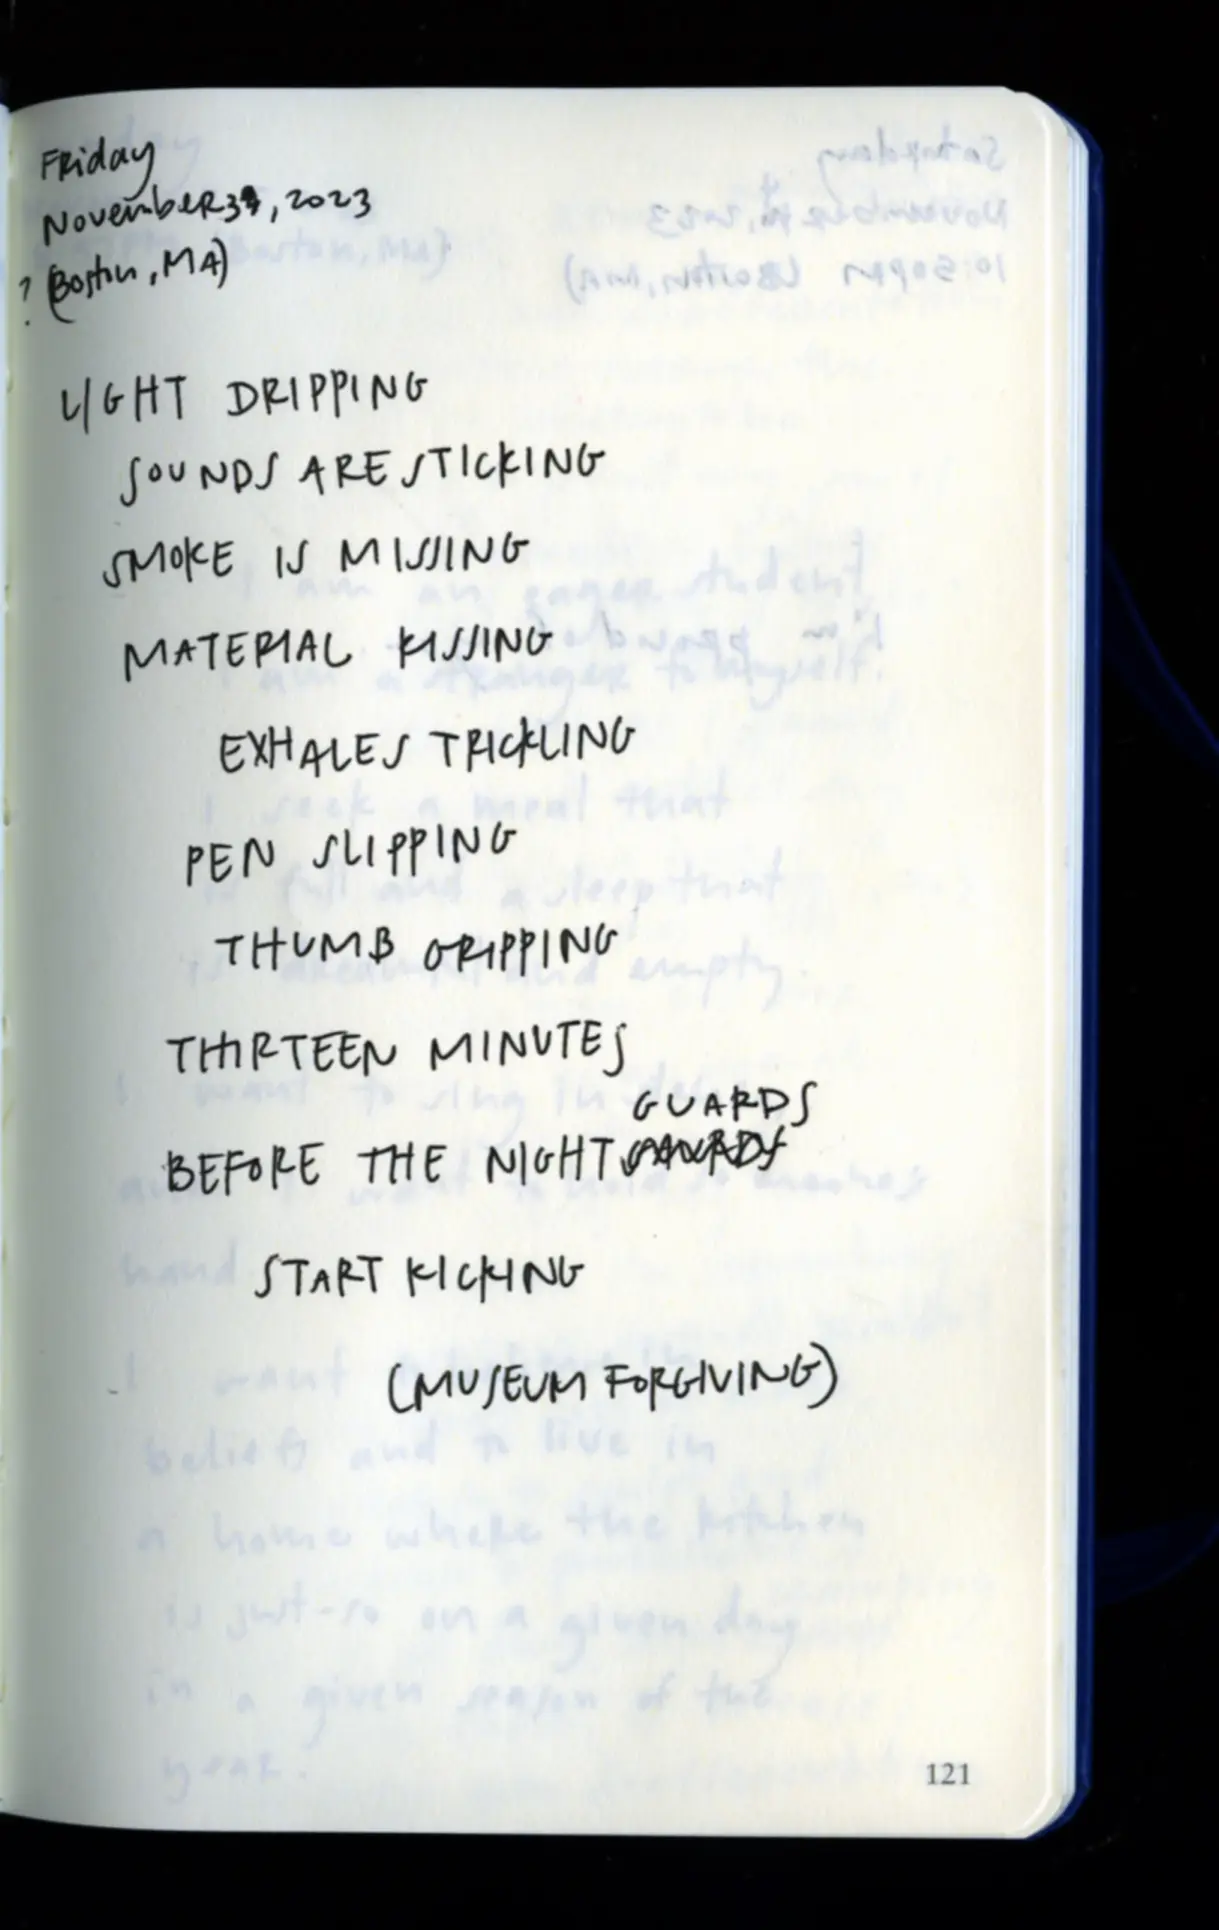 Friday
November 3, 2023
? (Boston, MA)
LIGHT DRIPPING
SOUNDS ARE STICKING
SMOKE IS MISSING
MATERIAL KISSING
EXHALES TRICKLING
PEN SLIPPING
THUMB GRIPPING
THIRTEEN MINUTES
GUARDS
BEFORE THE NIGHT
START KICKING
(MUSEUM FORGIVING)
121